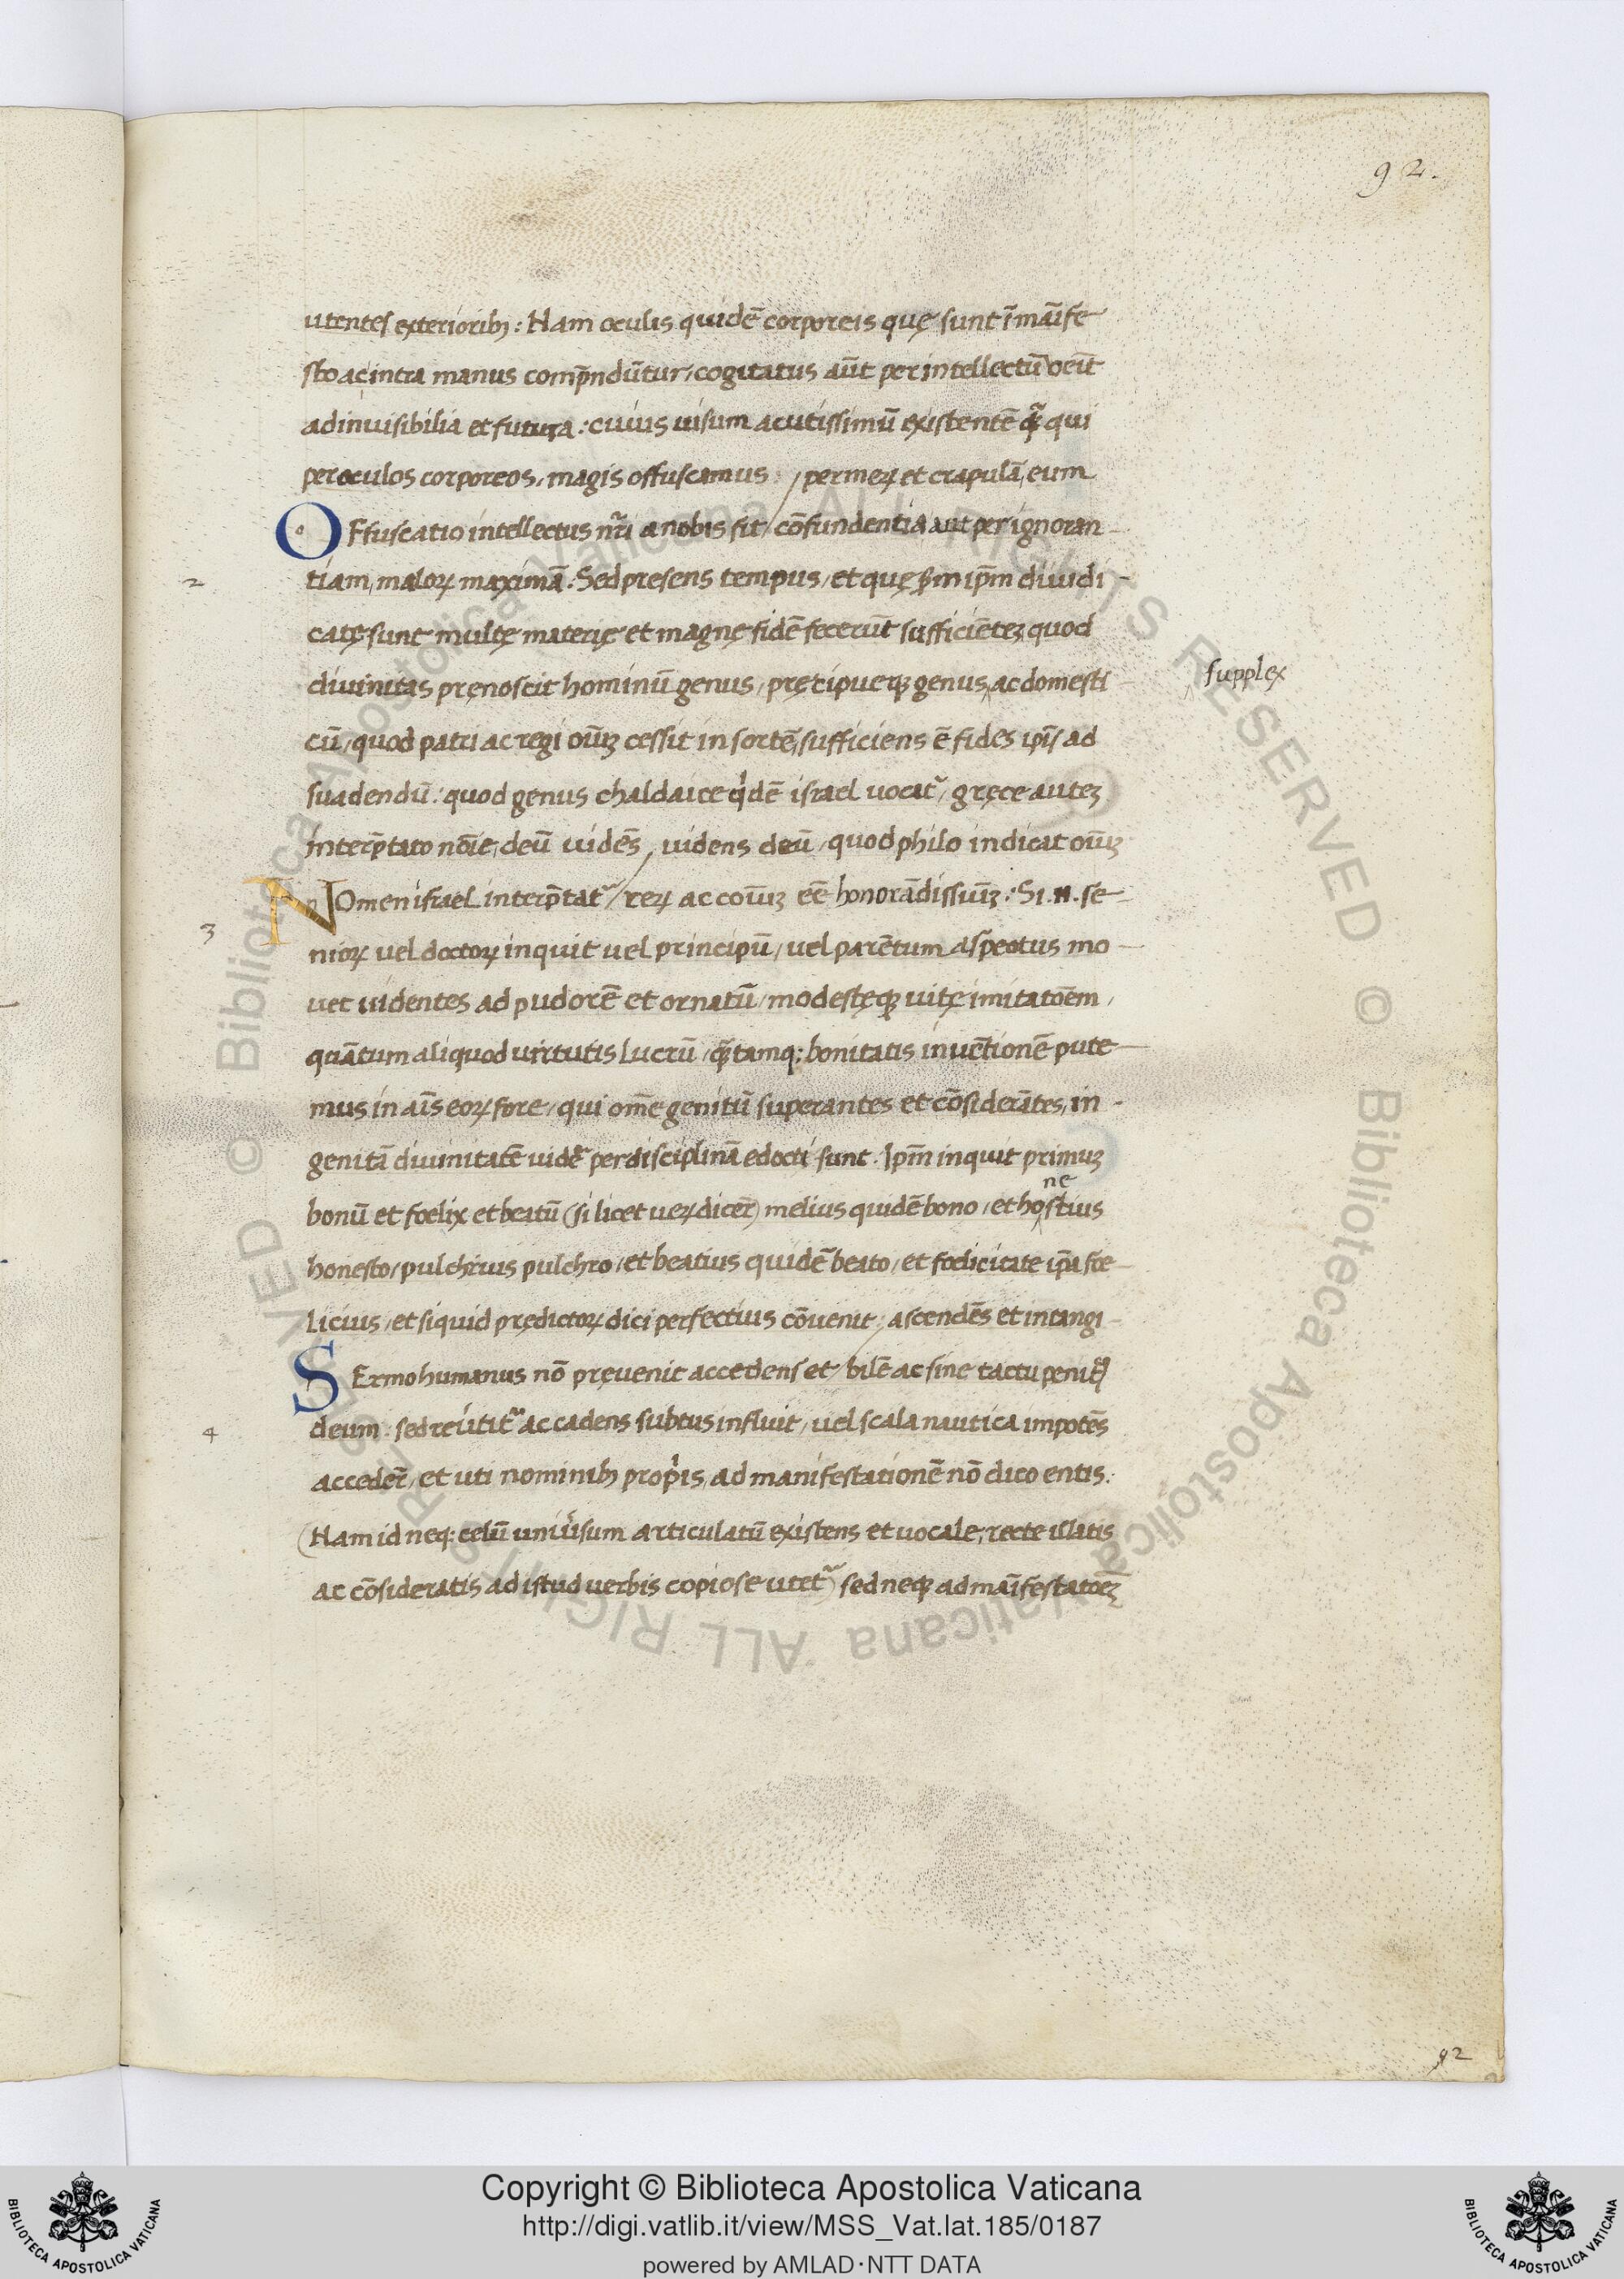 92.
utentes exterioribꝫ: Nam oculis quidē corporeis quę sunt ī māife
sto ac intra manus comp̄ndūtur, cogitatus aūt per intellectū oēūt
ad inuisibilia et futura: cuius uisum acutissimū existentē qui
per oculos corporeos, magis offuscamus, / per meꝝ et crapulā, eum
OFfuscatio intellectus nr̄i a nobis fit / cōfundentia aut per ignoran-
2
tiam, maloꝝ maximā. Sed presens tempus, et quę ip̄m diuidi-
catę sunt multę materię et magnę fidē fecerūt sufficiētez, quod
diuinitas pręnoscit hominū genus, pręcipuerqꝫ genus, ac domesti-
supplex
cū, quod patri ac regi oīuꝫ cessit in sortē, sufficiens ē fides ip̄is ad
suadendū: quod genus chaldaice qͥdē israel uocat᷑, gręce autez
interp̄tato nōie, deū uidēs, uidens deū, quod philo indicat oīuꝫ
3
NOmen israel interp̄tat᷑ / reꝝ ac coīuꝫ eē honorādissiuꝫ: Si .n. se-
nioꝝ uel doctoꝝ inquit uel principū, uel parētum aspectus mo-
uet uidentes ad pudorē et ornatū, modestęqꝫ uitę imitatōem,
quātum aliquod uirtutis lucrū, q̄ tamqꝫ bonitatis inuētionē pute-
mus in aīs eoꝝ fore, qui om̄e genitū superantes et cōsiderātes, in-
genitā diuinitatē uider̄ per disciplinā edocti sunt. Ip̄m inquit primuꝫ
bonū et foelix et beatū (si licet ueꝝ dicer̄) melius quidē bono, et hostius
ne
honesto, pulchrius pulchro, et beatius quidē beato, et foelicitate ip̄a foe-
licius, et siquid prędictoꝝ dici perfectius cōuenit, ascendēs et intangi-
SErmo humanus nō pręuenit accedens et / bilē ac sine tactu penitꝰ
4
deum: sed reūtit᷑ ac cadens subtus influit, uel scala nautica impotēs
acceder̄, et uti nominibꝫ propͥis, ad manifestationē nō dico entis.
(Nam id neqꝫ celū uniūsum articulatū existens et uocale, recte illatis
ac cōsideratis ad istud uerbis copiose utet᷑) sed neqꝫ ad māifestatōeꝫ
92
Copyright © Biblioteca Apostolica Vaticana
http://digi.vatlib.it/view/MSS_Vat.lat.185/0187
powered by AMLAD·NTT DATA